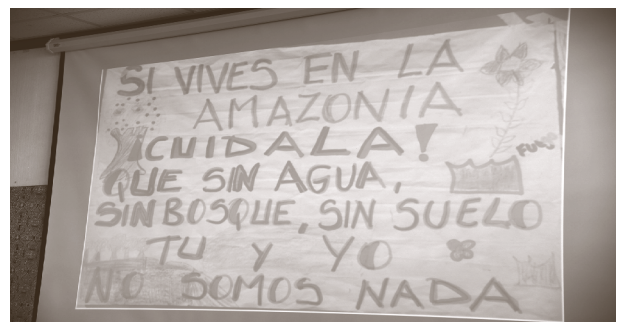 SI VIVES EN LA
AMAZONIA
¡CUIDALA!
QUE SIN AGUA,
SIN BOSQUE, SIN SUELO
TU Y YO
NO SOMOS NADA